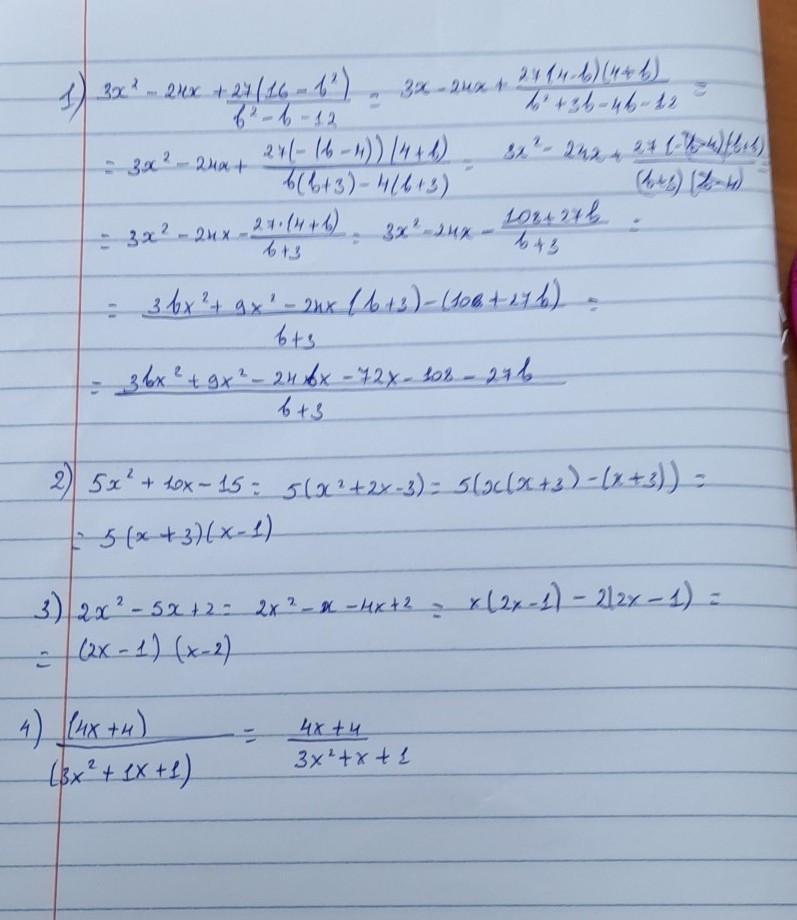 1) 3x² - 24x + 27(16 - b²)/(b² - b - 12) = 3x - 24x + 27(4-b)(4+b)/(b² + 3b - 4b - 12) =
= 3x² - 24x + 27(-(b-4))(4+b)/(b(b+3) - 4(b+3)) = 3x² - 24x + 27(-(b-4))(4+b)/((b+3)(b-4)) =
= 3x² - 24x - 27·(4+b)/(b+3) = 3x² - 24x - (108+27b)/(b+3) =
= (3bx² + 9x² - 24x(b+3) - (108+27b))/(b+3) =
= (3bx² + 9x² - 24bx - 72x - 108 - 27b)/(b+3)
2) 5x² + 10x - 15 = 5(x² + 2x - 3) = 5(x(x+3) - (x+3)) =
= 5(x+3)(x-1)
3) 2x² - 5x + 2 = 2x² - x - 4x + 2 = x(2x-1) - 2(2x-1) =
= (2x-1)(x-2)
4) (4x+4)/(3x² + 1x + 1) = (4x+4)/(3x² + x + 1)